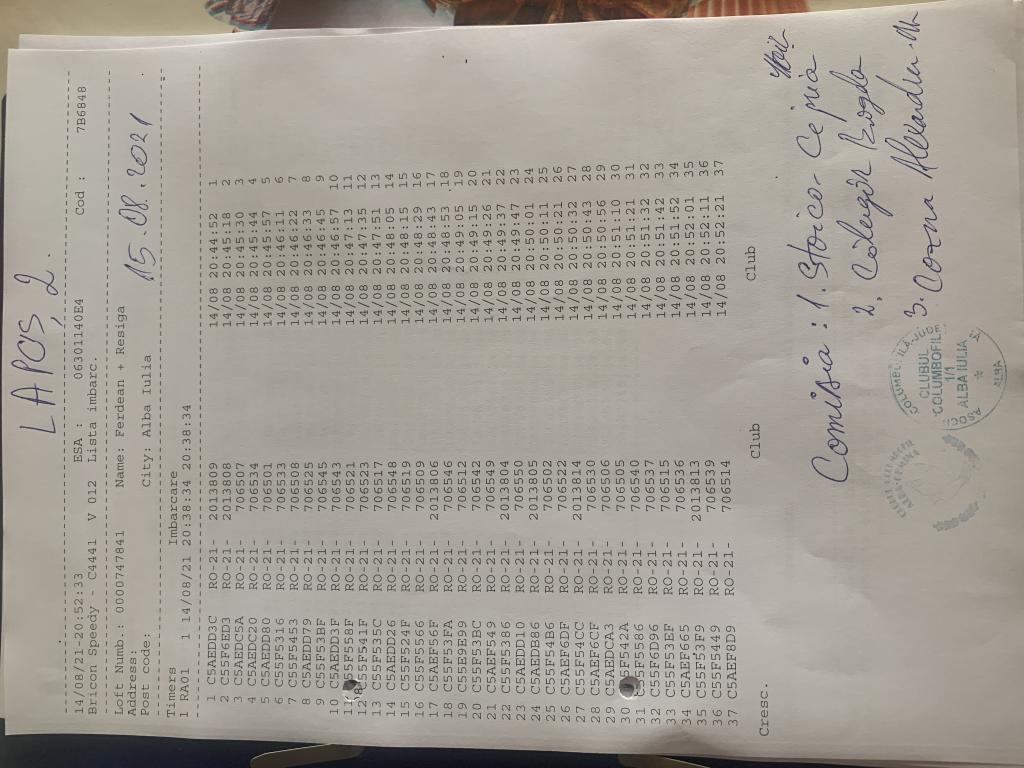 LAPOȘ 2.
14/08/21-20:52:33 ESA : 06301140E4 Cod : 7B6848
Bricon Speedy - C4441 V 012 Lista imbarc.
Loft Numb.: 0000747841 Name: Ferdean + Resiga
Address:
Post code: City: Alba Iulia 15.08.2021
Timers Imbarcare
1 RA01 1 14/08/21 20:38:34 20:38:34
1 C5AEDD3C RO-21- 2013809 14/08 20:44:52 1
2 C55F6ED3 RO-21- 2013808 14/08 20:45:18 2
3 C5AEDC5A RO-21- 706507 14/08 20:45:30 3
4 C5AEDC20 RO-21- 706534 14/08 20:45:44 4
5 C5AEDD80 RO-21- 706501 14/08 20:45:57 5
6 C55F5316 RO-21- 706533 14/08 20:46:11 6
7 C55F5453 RO-21- 706508 14/08 20:46:22 7
8 C5AEDD79 RO-21- 706525 14/08 20:46:33 8
9 C55F53BF RO-21- 706545 14/08 20:46:45 9
10 C5AEDD3F RO-21- 706543 14/08 20:46:57 10
11 C55F558F RO-21- 706521 14/08 20:47:13 11
12 C55F541F RO-21- 706523 14/08 20:47:35 12
13 C55F535C RO-21- 706517 14/08 20:47:51 13
14 C5AEDD26 RO-21- 706548 14/08 20:48:05 14
15 C55F524F RO-21- 706519 14/08 20:48:15 15
16 C55F5566 RO-21- 706509 14/08 20:48:29 16
17 C5AEF56F RO-21- 2013806 14/08 20:48:43 17
18 C55F53FA RO-21- 706546 14/08 20:48:53 18
19 C55E9E99 RO-21- 706512 14/08 20:49:05 19
20 C55F53BC RO-21- 706542 14/08 20:49:15 20
21 C5AEF549 RO-21- 706549 14/08 20:49:26 21
22 C55F5386 RO-21- 2013804 14/08 20:49:37 22
23 C5AEDD10 RO-21- 706550 14/08 20:49:47 23
24 C5AEDB86 RO-21- 2013805 14/08 20:50:01 24
25 C55F54B6 RO-21- 706502 14/08 20:50:11 25
26 C5AEF6DF RO-21- 706522 14/08 20:50:21 26
27 C55F54CC RO-21- 2013814 14/08 20:50:32 27
28 C5AEF6CF RO-21- 706530 14/08 20:50:43 28
29 C5AEDCA3 RO-21- 706506 14/08 20:50:56 29
30 C55F542A RO-21- 706505 14/08 20:51:10 30
31 C55F5586 RO-21- 706540 14/08 20:51:21 31
32 C55F6D96 RO-21- 706537 14/08 20:51:32 32
33 C55F53EF RO-21- 706515 14/08 20:51:42 33
34 C5AEF665 RO-21- 706536 14/08 20:51:52 34
35 C55F53F9 RO-21- 2013813 14/08 20:52:01 35
36 C55F5449 RO-21- 706539 14/08 20:52:11 36
37 C5AEF8D9 RO-21- 706514 14/08 20:52:21 37
Cresc. Club Club
Comisia : 1. Stoico
2. Bogda
3. Alexandru
CLUBUL
COLUMBOFIL
1/1
ALBA IULIA
ALBA